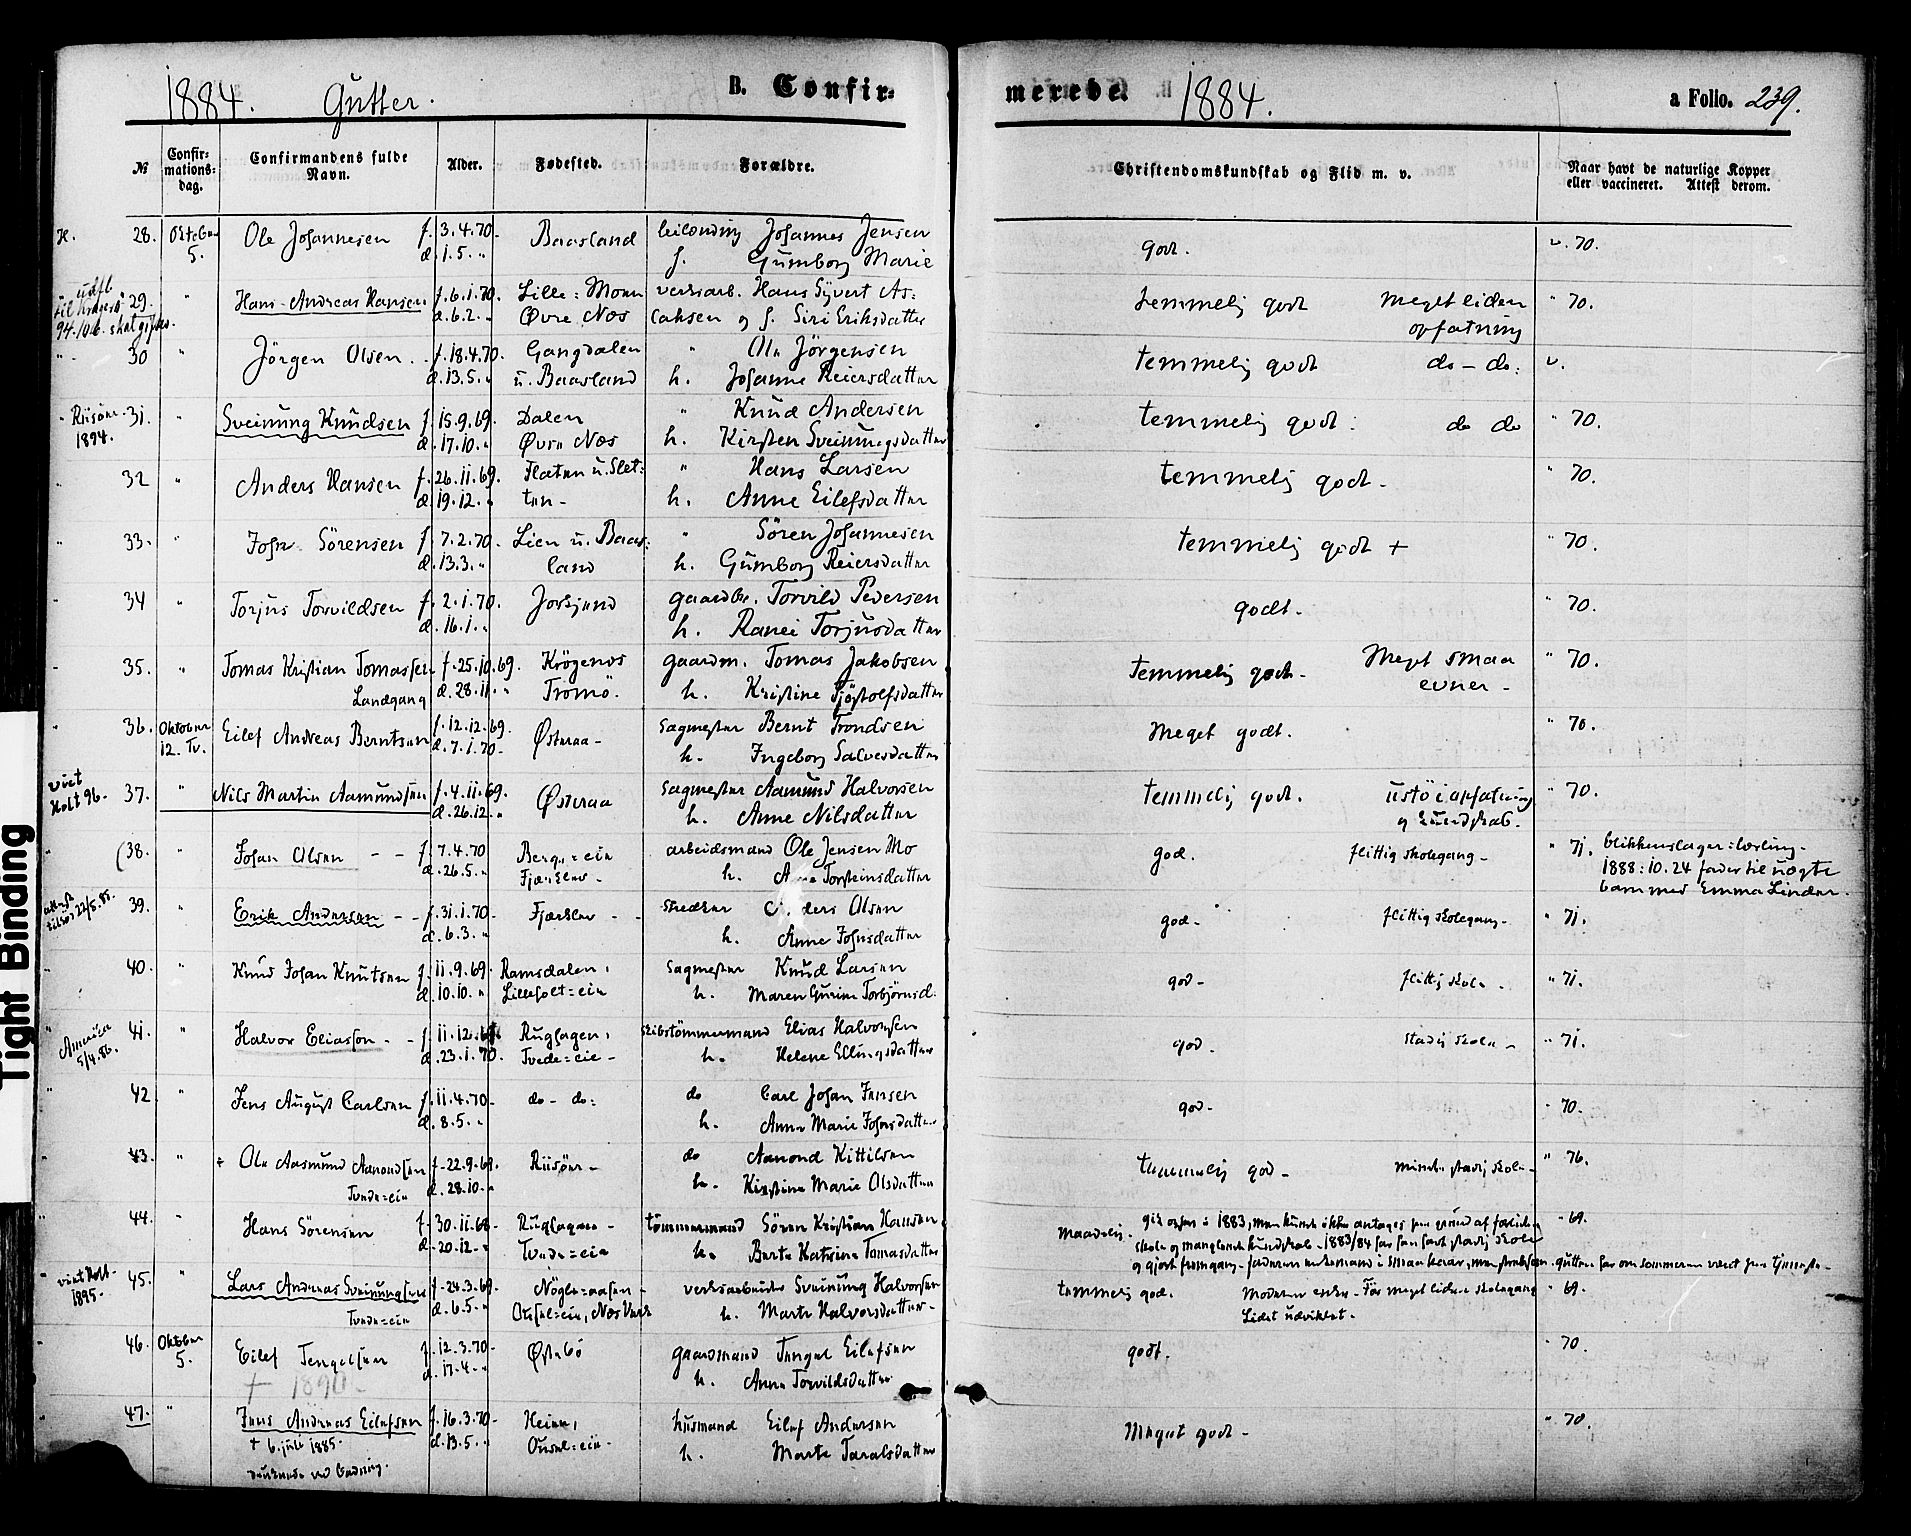 1884. Gutter. B. Confir-
merede. 1884. a Folio. 239.
№ Confir-mations-dag. Confirmandens fulde Navn. Alder. Fødested. Forældre. Christendomskundskab og Flid m. v. Naar havt de naturlige Kopper eller vaccineret. Attest derom.
28. Oktober 5. Ole Johannesen f. 3.4.70. Baasland leilending Johannes Jensen godt. v. 70.
d. 1.5. " h. Gumborg Marie
til Kragerø 94.10.6. 29. " Hans Andreas Hansen f. 6.1.70. Lille-Moen verksarb. Hans Syvert As- temmelig godt Meget liden " 70.
d. 6.2. " Øvre Næs laksen og h. Siri Eriksdatter opfatning
30 " Jörgen Olsen. f. 18.4.70. Gangdalen " Ole Jörgensen temmelig godt do - do: v.
d. 13.5. " u. Baasland h. Johanne Reiersdatter
Riisöer 1894. 31. " Sveinung Knudsen f. 15.9.69. Dalen " Knud Andersen temmelig godt: do do " 70.
d. 17.10. " Øvre Næs h. Kirsten Sveinungsdatter
32 " Anders Hansen f. 26.11.69. Flaten u. Slet- " Hans Larsen temmelig godt. " 70.
d. 19.12. " ten - h. Anne Eilefsdatter
33. " John Sörensen f. 7.2.70. Lien u. Baas- " Sören Johannesen temmelig godt + " 70.
d. 13.3. " land h. Gumborg Reiersdatter
34 " Torjus Torvildsen f. 2.1.70. gaardbr. Torvild Pedersen godt. " 70.
d. 16.1. " h. Ranei Torjusdatter
35. " Tomas Kristian Tomassen f. 25.10.69. Krögenes gaardm. Tomas Jakobsen temmelig godt. Meget smaa " 70.
Landgang d. 28.11. " Tromö. h. Kristine Tjöstolfsdatter evner -
36. Oktober 12. Tv. Eilef Andreas Berntsen f. 12.12.69. Østeraa - sagmester Bernt Trondsen Meget godt. " 70.
d. 7.1.70. h. Ingeborg Salvesdatter
viet Holt 96. 37. " Nils Martin Aamundsen f. 4.11.69. Østeraa sagmester Aamund Halvorsen temmelig godt. ustö i opfatning " 70.
d. 26.12. " h. Anne Nilsdatter og kundskab.
(38. " Johan Olsen f. 7.4.70 Berge-eie arbeidsmand Ole Jensen Mo god. flittig skolegang - " 71. blikkenslager-lærling.
d. 26.5. " Fjærkler - h. Torsteinsdatter 1888: 10.24 fader til uægte
barn med Emma Linder.
22/5.85. 39. " Erik Andersen f. 31.1.70. Fjærkler - Olsen god - flittig skolegang - " 71.
d. 6.3. " h. Anne Johnsdatter
40. " Knud Johan Knutsen f. 11.9.69. Ramsdalen, sagmester Knud Larsen god - flittig skole - " 71.
d. 10.10. " Lilleholt-eie h. Maren Gurine Torbjörnsd.
Amerika 5/4.86. 41. " Halvor Eliassen f. 11.12.69. Rughagen, skibstömmermand Elias Halvorsen god. stadig skole - " 71.
d. 23.1.70. Tvede-eie - h. Helene Ellingsdatter
42 " Jens August Carlsen f. 11.4.70. do - do: do Carl Johan Jensen god - " 70.
d. 8.5. " h. Anne Marie Johnsdatter
43. " Ole Aasmund Aanondsen f. 22.9.69. Riisöer - do Aanond Kittilsen temmelig god - mindre stadig skole - " 76.
Tvede-eie d. 28.10. " h. Kirstine Marie Olsdatter
44. " Hans Sörensen f. 30.11.68. Rughagen - tömmermand Sören Kristian Hansen Maadelig. gik ogsaa i 1883, men kunde ikke antages paa grund af forliden " 69.
d. 20.12. " Tvede-eie h. Berte Katrine Tomasdatter skole og manglende kundskab. 1883/84 har han havt stadig skole
og gjort fremgang.
viet Holt 1895. 45. " Lars Andreas Sveinungsen f. 24.3.69. verksarbeider Sveinung Halvorsen temmelig god. Moderen enke - Før meget liden skolegang " 69.
Tvede-eie d. 6.5. " h. Marte Halvorsdatter Lidet udviklet.
46. Oktober 5. Eilef Tengelsen f. 12.3.70. Østebö gaardmand Tengel Eilefsen godt. " 70.
+ 1890 - d. 17.4. " h. Anne Torvildsdatter
47. " Jens Andreas Eilefsen f. 16.3.70. Heien, husmand Eilef Andersen Meget godt - " 70.
+ 6. juli 1885. d. 13.5. " Ousel-eie - h. Marte Taralsdatter
druknede ved badning.
Tight Binding